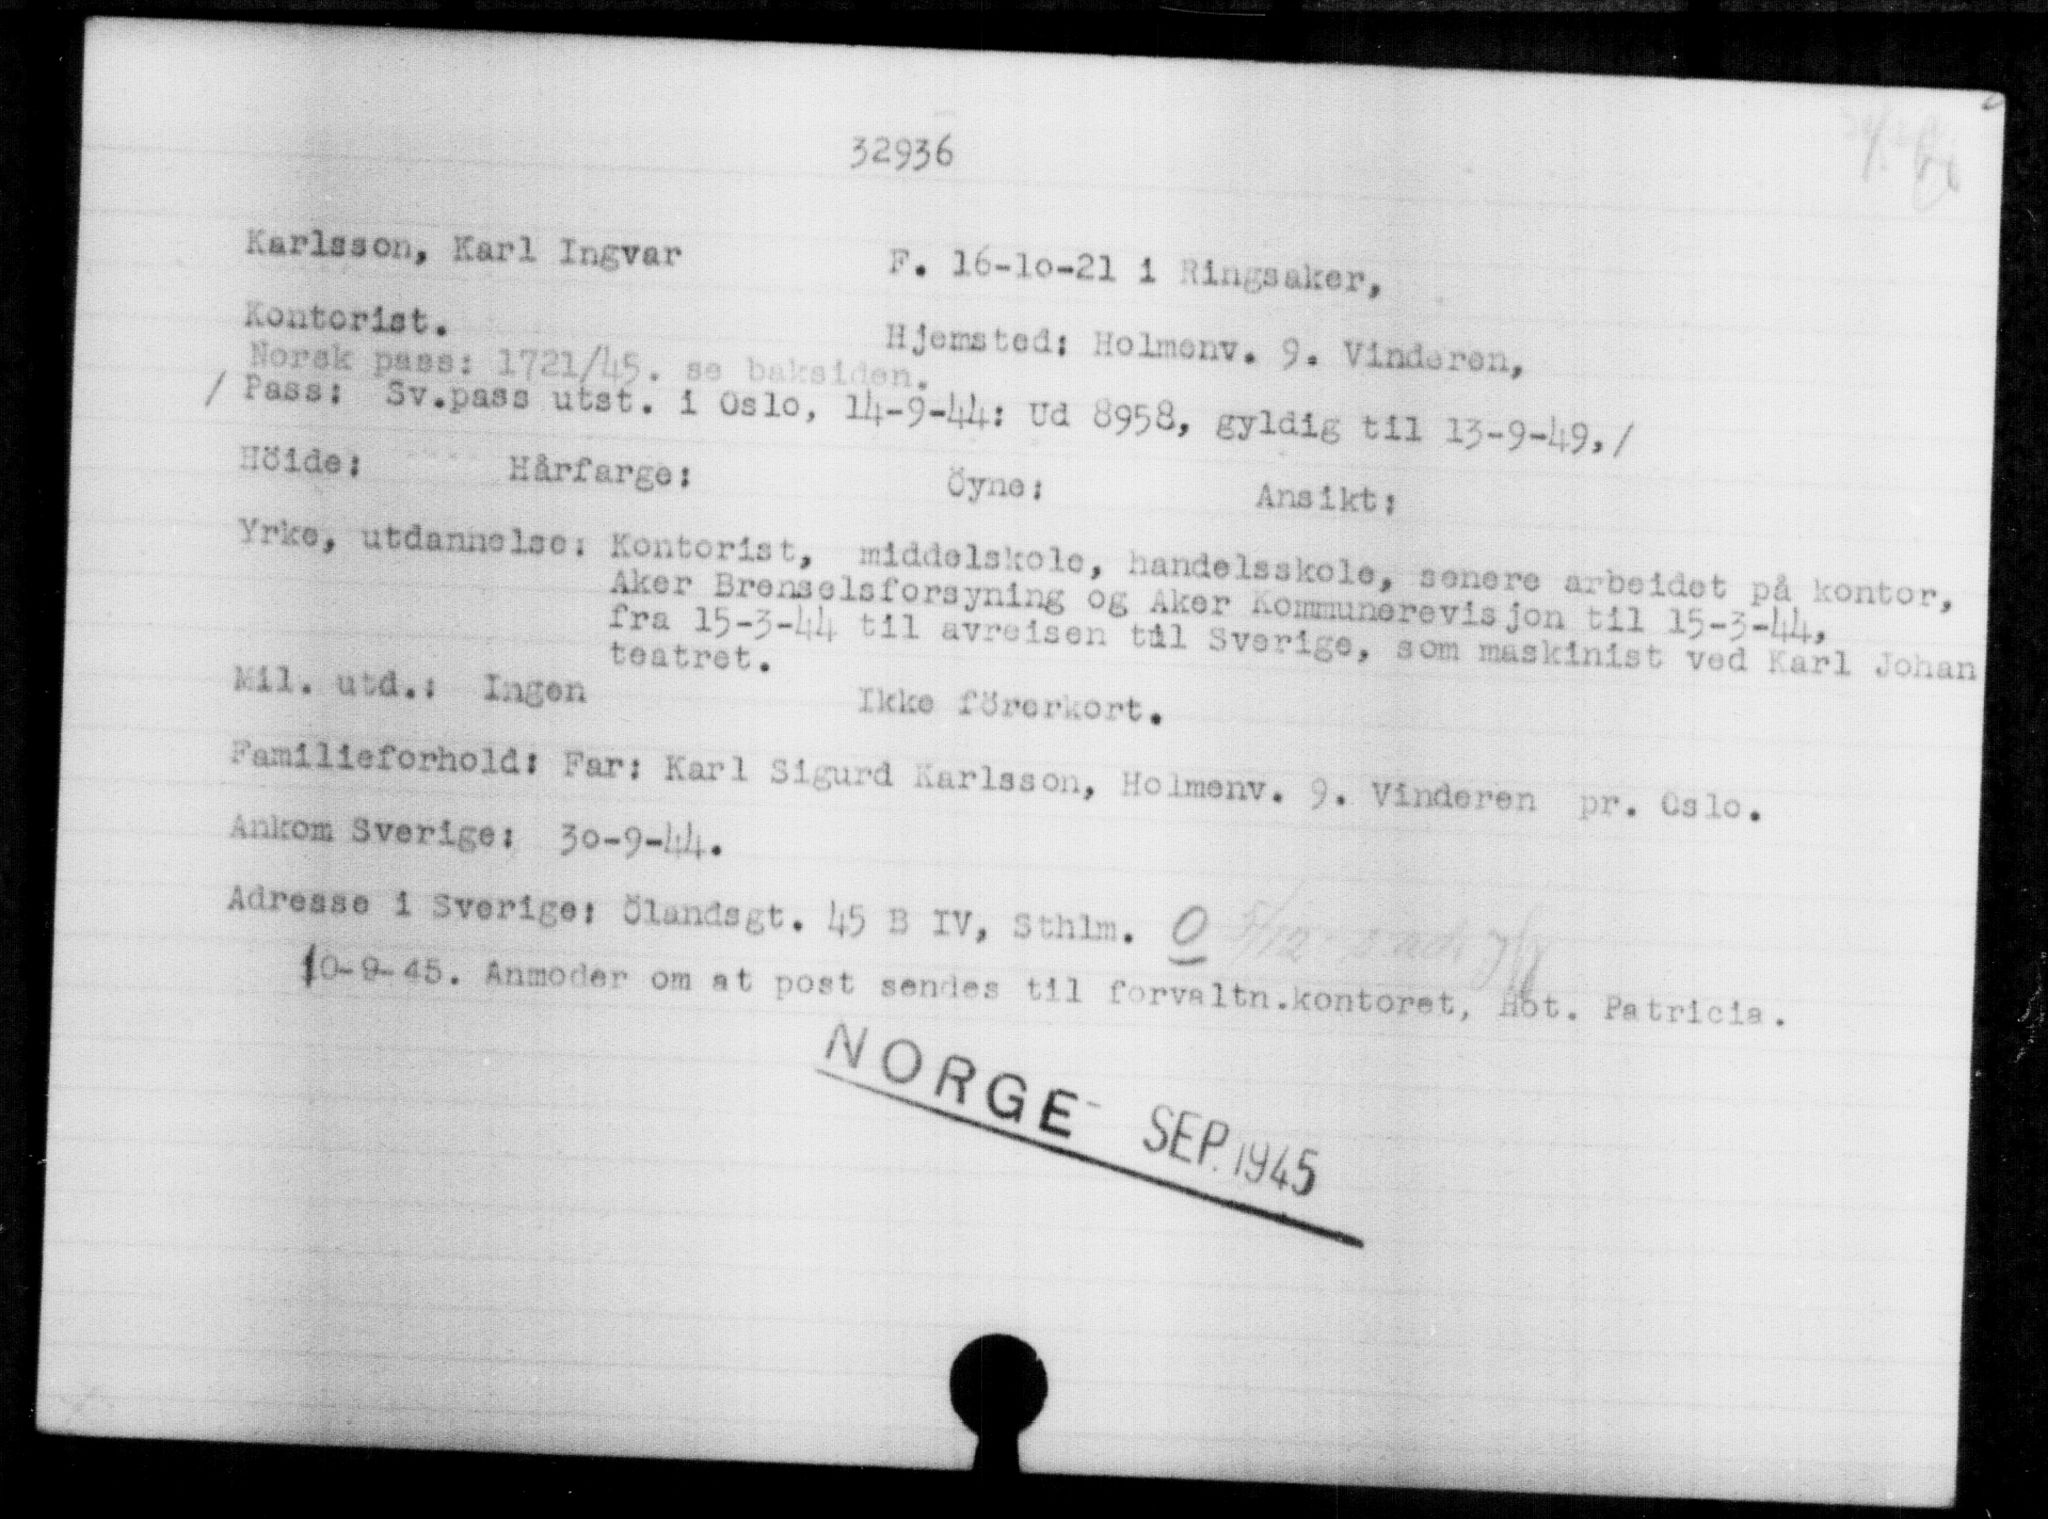 32936
Karlsson, Karl Ingvar F. 16-10-21 i Ringsaker,
Kontorist. Hjemsted: Holmenv. 9. Vinderen,
Norsk pass: 1721/45. se baksiden.
/ Pass: Sv.pass utst. i Oslo, 14-9-44: Ud 8958, gyldig til 13-9-49./
Höide: Hårfarge: Öyne: Ansikt:
Yrke, utdannelse: Kontorist, middelskole, handelsskole, senere arbeidet på kontor,
Aker Brenselsforsyning og Aker Kommunerevisjon til 15-3-44,
fra 15-3-44 til avreisen til Sverige, som maskinist ved Karl Johan
teatret.
Mil. utd.: Ingen Ikke förerkort.
Familieforhold: Far: Karl Sigurd Karlsson, Holmenv. 9. Vinderen pr. Oslo.
Ankom Sverige: 30-9-44.
Adresse i Sverige: Ölandsgt. 45 B IV, Sthlm. O
10-9-45. Anmoder om at post sendes til forvaltn.kontoret, Hot. Patricia.
NORGE - SEP. 1945